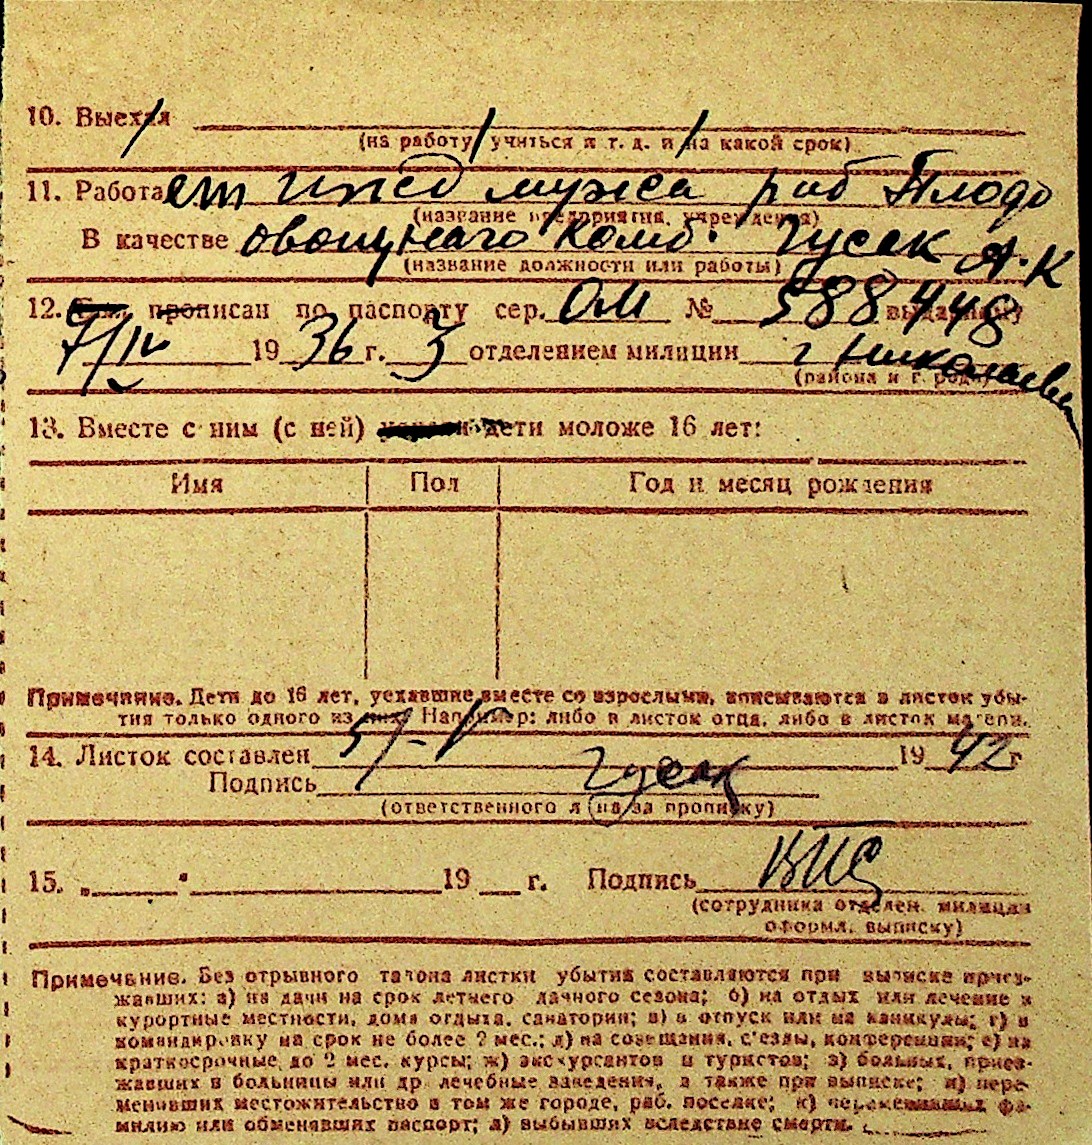 10. Выехал
(на работу, учиться и т. д. и на какой срок)
11. Работает ижд мужа раб Плодо
(название предприятия, учреждения)
В качестве овощнаго комб. Гусак А.К
(название должности или работы)
12. прописан по паспорту сер. ОМ № 588448 выданному
7/IV 1936 г. 3 отделением милиции г Николаев
(района и города)
13. Вместе с ним (с ней) дети моложе 16 лет:
Имя Пол Год и месяц рождения
Примечание. Дети до 16 лет, уехавшие вместе со взрослыми, вписываются в листок убы-
тия только одного из них. Например: либо в листок отца, либо в листок матери.
14. Листок составлен 5/-V 1942 г
Подпись Гусак
(ответственного лица за прописку)
15. „ " 19 г. Подпись
(сотрудника отделен. милиции
оформл. выписку)
Примечание. Без отрывного талона листки убытия составляются при выписке приез-
жавших: а) на дачи на срок летнего дачного сезона; б) на отдых или лечение в
курортные местности, дома отдыха, санатории; в) в отпуск или на каникулы; г) в
командировку на срок не более 2 мес.; д) на совещания, с'езды, конференции; е) на
краткосрочные до 2 мес. курсы; ж) экскурсантов и туристов; з) больных, приез-
жавших в больницы или др лечебные заведения, а также при выписке; и) пере-
менивших местожительство в том же городе, раб. поселке; к) переменивших фа-
милию или обменявших паспорт; л) выбывших вследствие смерти.